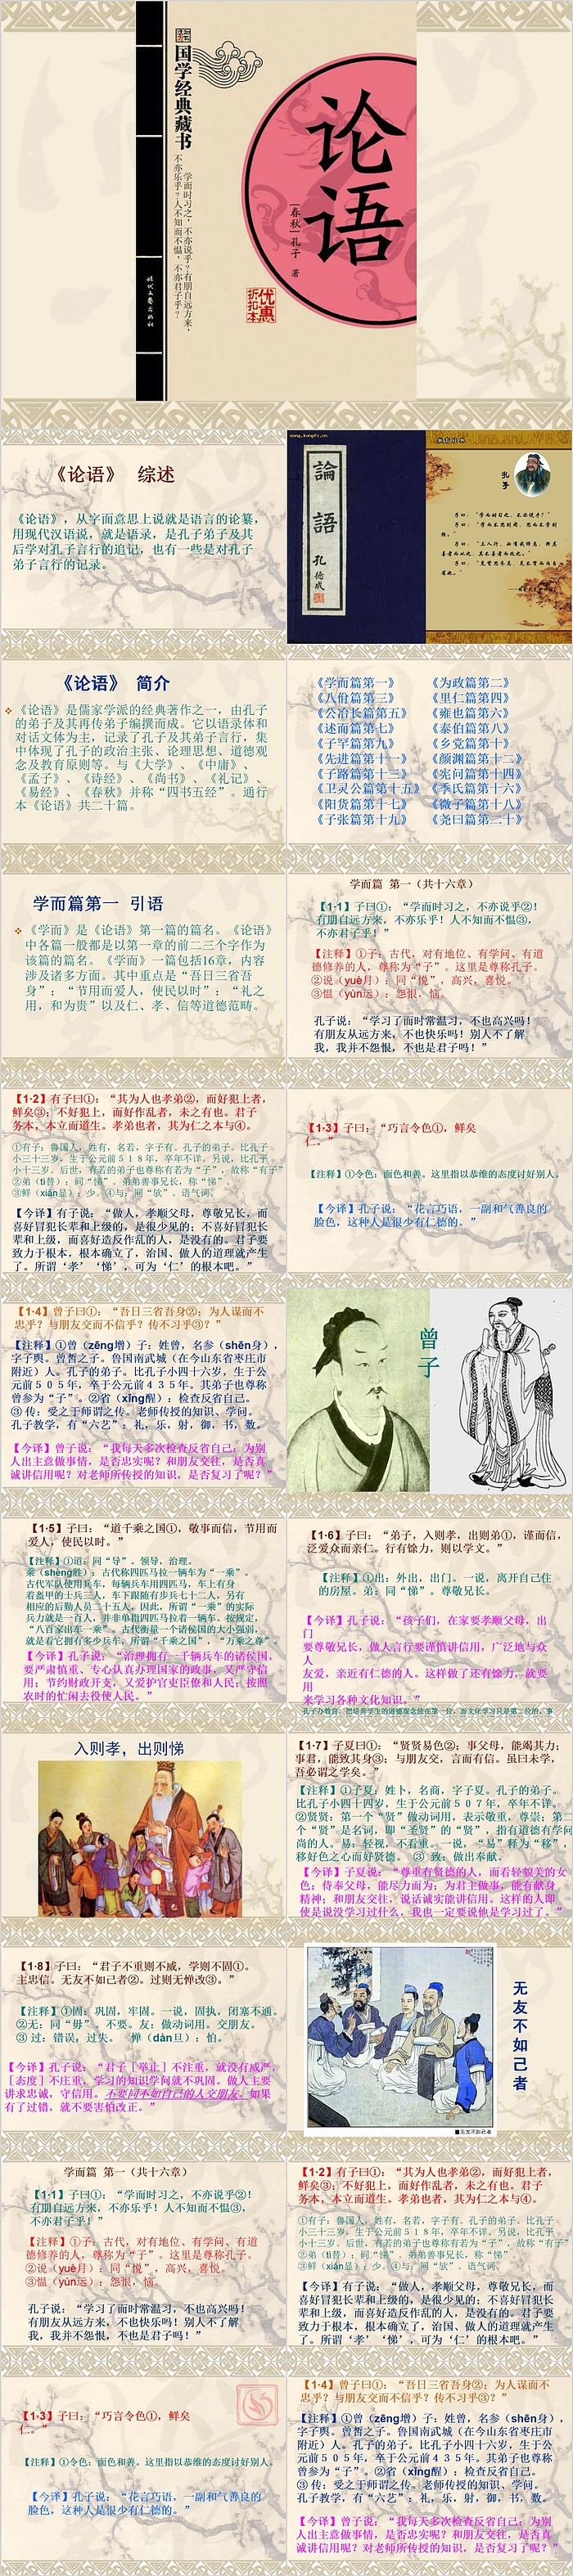 国学经典藏书
学而时习之，不亦说乎？有朋自远方来，
不亦乐乎？人不知而不愠，不亦君子乎？
论语
［春秋］孔子 著
优惠
折扣本
《论语》 综述
《论语》，从字而意思上说就是语言的论纂，
用现代汉语说，就是语录，是孔子弟子及其
后学对孔子言行的追记，也有一些是对孔子
弟子言行的记录。
論語
孔德成
孔子
《论语》 简介
《论语》是儒家学派的经典著作之一，由孔子
的弟子及其再传弟子编撰而成。它以语录体和
对话文体为主，记录了孔子及其弟子言行，集
中体现了孔子的政治主张、论理思想、道德观
念及教育原则等。与《大学》、《中庸》、
《孟子》、《诗经》、《尚书》、《礼记》、
《易经》、《春秋》并称“四书五经”。通行
本《论语》共二十篇。
《学而篇第一》 《为政篇第二》
《八佾篇第三》 《里仁篇第四》
《公冶长篇第五》 《雍也篇第六》
《述而篇第七》 《泰伯篇第八》
《子罕篇第九》 《乡党篇第十》
《先进篇第十一》 《颜渊篇第十二》
《子路篇第十三》 《宪问篇第十四》
《卫灵公篇第十五》 《季氏篇第十六》
《阳货篇第十七》 《微子篇第十八》
《子张篇第十九》 《尧曰篇第二十》
学而篇第一 引语
《学而》是《论语》第一篇的篇名。《论语》
中各篇一般都是以第一章的前二三个字作为
该篇的篇名。《学而》一篇包括16章，内容
涉及诸多方面。其中重点是“吾日三省吾
身”；“节用而爱人，使民以时”；“礼之
用，和为贵”以及仁、孝、信等道德范畴。
学而篇 第一（共十六章）
【1·1】子曰①：“学而时习之，不亦说乎②！
有朋自远方来，不亦乐乎！人不知而不愠③，
不亦君子乎！”
【注释】①子：古代，对有地位、有学问、有道
德修养的人，尊称为“子”。这里是尊称孔子。
②说（yuè月）：同“悦”，高兴，喜悦。
③愠（yùn运）：怨恨，恼。
孔子说：“学习了而时常温习，不也高兴吗！
有朋友从远方来，不也快乐吗！别人不了解
我，我并不怨恨，不也是君子吗！”
【1·2】有子曰①：“其为人也孝弟②，而好犯上者，
鲜矣③；不好犯上，而好作乱者，未之有也。君子
务本，本立而道生。孝弟也者，其为仁之本与④。
①有子：鲁国人，姓有，名若，字子有。孔子的弟子。比孔子
小三十三岁，生于公元前５１８年，卒年不详。另说，比孔子
小十三岁。后世，有若的弟子也尊称有若为“子”，故称“有子”
②弟（tì替）：同“悌”。弟弟善事兄长，称“悌”
③鲜（xiǎn显）：少。④与：同“欤”。语气词。
【今译】有子说：“做人，孝顺父母，尊敬兄长，而
喜好冒犯长辈和上级的，是很少见的；不喜好冒犯长
辈和上级，而喜好造反作乱的人，是没有的。君子要
致力于根本，根本确立了，治国、做人的道理就产生
了。所谓‘孝’‘悌’，可为‘仁’的根本吧。”
【1·3】子曰：“巧言令色①，鲜矣
仁。”
【注释】①令色：面色和善。这里指以恭维的态度讨好别人。
【今译】孔子说：“花言巧语，一副和气善良的
脸色，这种人是很少有仁德的。”
【1·4】曾子曰①：“吾日三省吾身②：为人谋而不
忠乎？与朋友交而不信乎？传不习乎③？”
【注释】①曾（zēng增）子：姓曾，名参（shēn身），
字子舆。曾晳之子。鲁国南武城（在今山东省枣庄市
附近）人。孔子的弟子。比孔子小四十六岁，生于公
元前５０５年，卒于公元前４３５年。其弟子也尊称
曾参为“子”。②省（xǐng醒）：检查反省自己。
③ 传：受之于师谓之传。老师传授的知识、学问。
孔子教学，有“六艺”：礼，乐，射，御，书，数。
【今译】曾子说：“我每天多次检查反省自己：为别
人出主意做事情，是否忠实呢？和朋友交往，是否真
诚讲信用呢？对老师所传授的知识，是否复习了呢？”
曾子
【1·5】子曰：“道千乘之国①，敬事而信，节用而
爱人，使民以时。”
【注释】①道：同“导”。领导，治理。
乘（shèng胜）：古代称四匹马拉一辆车为“一乘”。
古代军队使用兵车，每辆兵车用四匹马，车上有身
着盔甲的士兵三人，车下跟随有步兵七十二人，另有
相应的后勤人员二十五人，因此，所谓“一乘”的实际
兵力就是一百人，并非单指四匹马拉着一辆车。按规定，
“八百家出车一乘”。古代衡量一个诸侯国的大小强弱，
就是看它拥有多少兵车，所谓“千乘之国”，“万乘之尊”。
【今译】孔子说：“治理拥有一千辆兵车的诸侯国，
要严肃慎重、专心认真办理国家的政事，又严守信
用；节约财政开支，又爱护官吏臣僚和人民；按照
农时的忙闲去役使人民。”
【1·6】子曰：“弟子，入则孝，出则弟①，谨而信，
泛爱众而亲仁。行有馀力，则以学文。”
【注释】①出：外出，出门。一说，离开自己住
的房屋。弟：同“悌”。尊敬兄长。
【今译】孔子说：“孩子们，在家要孝顺父母，出
门
要尊敬兄长，做人言行要谨慎讲信用，广泛地与众
人
友爱，亲近有仁德的人。这样做了还有馀力，就要
用
来学习各种文化知识。”
孔子办教育，把培养学生的道德观念放在第一位，而文化学习只是第二位的。事
入则孝，出则悌
【1·7】子夏曰：“贤贤易色②；事父母，能竭其力；
事君，能致其身③；与朋友交，言而有信。虽曰未学，
吾必谓之学矣。”
【注释】①子夏：姓卜，名商，字子夏。孔子的弟子。
比孔子小四十四岁，生于公元前５０７年，卒年不详。
②贤贤：第一个“贤”做动词用，表示敬重，尊崇；第二
个“贤”是名词，即“圣贤”的“贤”，指有道德有学问
尚的人。易：轻视，不看重。一说，“易”释为“移”，
移好色之心而好贤德。 ③ 致：做出奉献。
【今译】子夏说：“尊重有贤德的人，而看轻貌美的女
色；侍奉父母，能尽力而为；为君主做事，能有献身
精神；和朋友交往，说话诚实能讲信用。这样的人即
使是说没学习过什么，我也一定要说他是学习过了。”
【1·8】子曰：“君子不重则不威，学则不固①。
主忠信。无友不如己者②。过则无惮改③。”
【注释】①固：巩固，牢固。一说，固执，闭塞不通。
②无：同“毋”。不要。友：做动词用。交朋友。
③ 过：错误，过失。 惮（dàn旦）：怕。
【今译】孔子说：“君子［举止］不注重，就没有威严；
［态度］不庄重，学习的知识学问就不巩固。做人主要
讲求忠诚，守信用。不要同不如自己的人交朋友。如果
有了过错，就不要害怕改正。”
无友不如己者
■无友不如己者
学而篇 第一（共十六章）
【1·1】子曰①：“学而时习之，不亦说乎②！
有朋自远方来，不亦乐乎！人不知而不愠③，
不亦君子乎！”
【注释】①子：古代，对有地位、有学问、有道
德修养的人，尊称为“子”。这里是尊称孔子。
②说（yuè月）：同“悦”，高兴，喜悦。
③愠（yùn运）：怨恨，恼。
孔子说：“学习了而时常温习，不也高兴吗！
有朋友从远方来，不也快乐吗！别人不了解
我，我并不怨恨，不也是君子吗！”
【1·2】有子曰①：“其为人也孝弟②，而好犯上者，
鲜矣③；不好犯上，而好作乱者，未之有也。君子
务本，本立而道生。孝弟也者，其为仁之本与④。
①有子：鲁国人，姓有，名若，字子有。孔子的弟子。比孔子
小三十三岁，生于公元前５１８年，卒年不详。另说，比孔子
小十三岁。后世，有若的弟子也尊称有若为“子”，故称“有子”
②弟（tì替）：同“悌”。弟弟善事兄长，称“悌”
③鲜（xiǎn显）：少。④与：同“欤”。语气词。
【今译】有子说：“做人，孝顺父母，尊敬兄长，而
喜好冒犯长辈和上级的，是很少见的；不喜好冒犯长
辈和上级，而喜好造反作乱的人，是没有的。君子要
致力于根本，根本确立了，治国、做人的道理就产生
了。所谓‘孝’‘悌’，可为‘仁’的根本吧。”
【1·3】子曰：“巧言令色①，鲜矣
仁。”
【注释】①令色：面色和善。这里指以恭维的态度讨好别人。
【今译】孔子说：“花言巧语，一副和气善良的
脸色，这种人是很少有仁德的。”
【1·4】曾子曰①：“吾日三省吾身②：为人谋而不
忠乎？与朋友交而不信乎？传不习乎③？”
【注释】①曾（zēng增）子：姓曾，名参（shēn身），
字子舆。曾晳之子。鲁国南武城（在今山东省枣庄市
附近）人。孔子的弟子。比孔子小四十六岁，生于公
元前５０５年，卒于公元前４３５年。其弟子也尊称
曾参为“子”。②省（xǐng醒）：检查反省自己。
③ 传：受之于师谓之传。老师传授的知识、学问。
孔子教学，有“六艺”：礼，乐，射，御，书，数。
【今译】曾子说：“我每天多次检查反省自己：为别
人出主意做事情，是否忠实呢？和朋友交往，是否真
诚讲信用呢？对老师所传授的知识，是否复习了呢？”